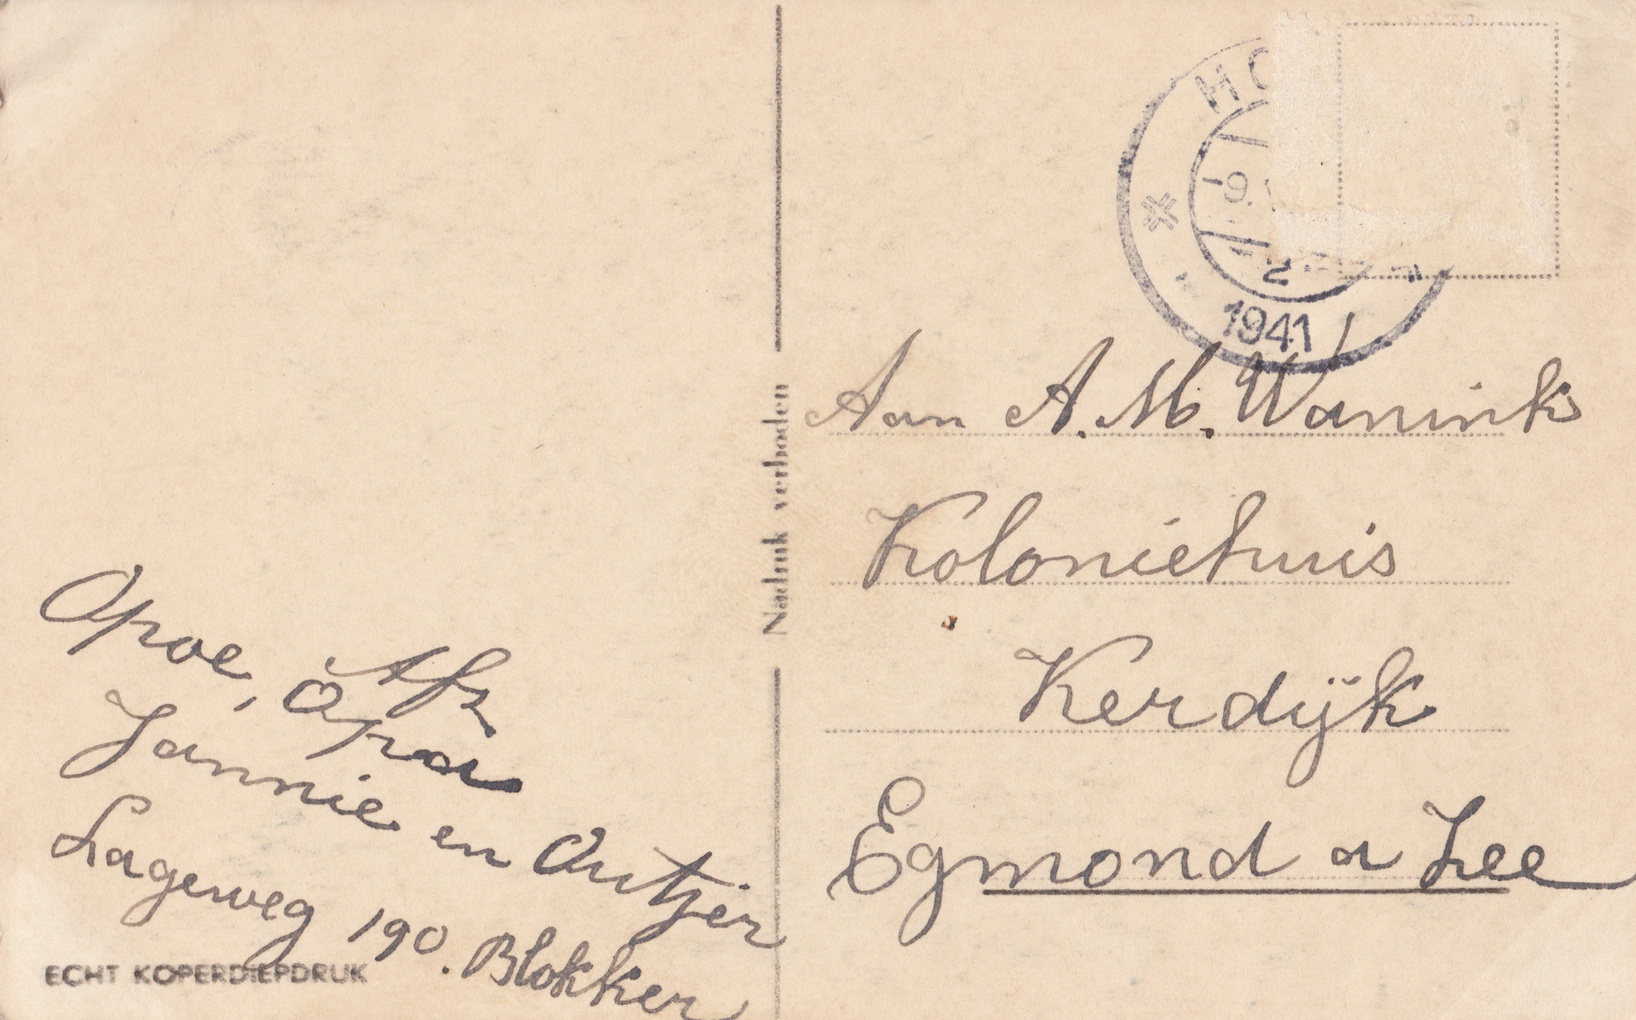 Afz
Opoe, Opa
Jannie en Ontjer
Lageweg 190. Blokker
ECHT KOPERDIEPDRUK
Nadruk verboden
HO
-9.
2
1941
Aan A.M. Wanink
Koloniehuis
Kerdijk
Egmond a Zee